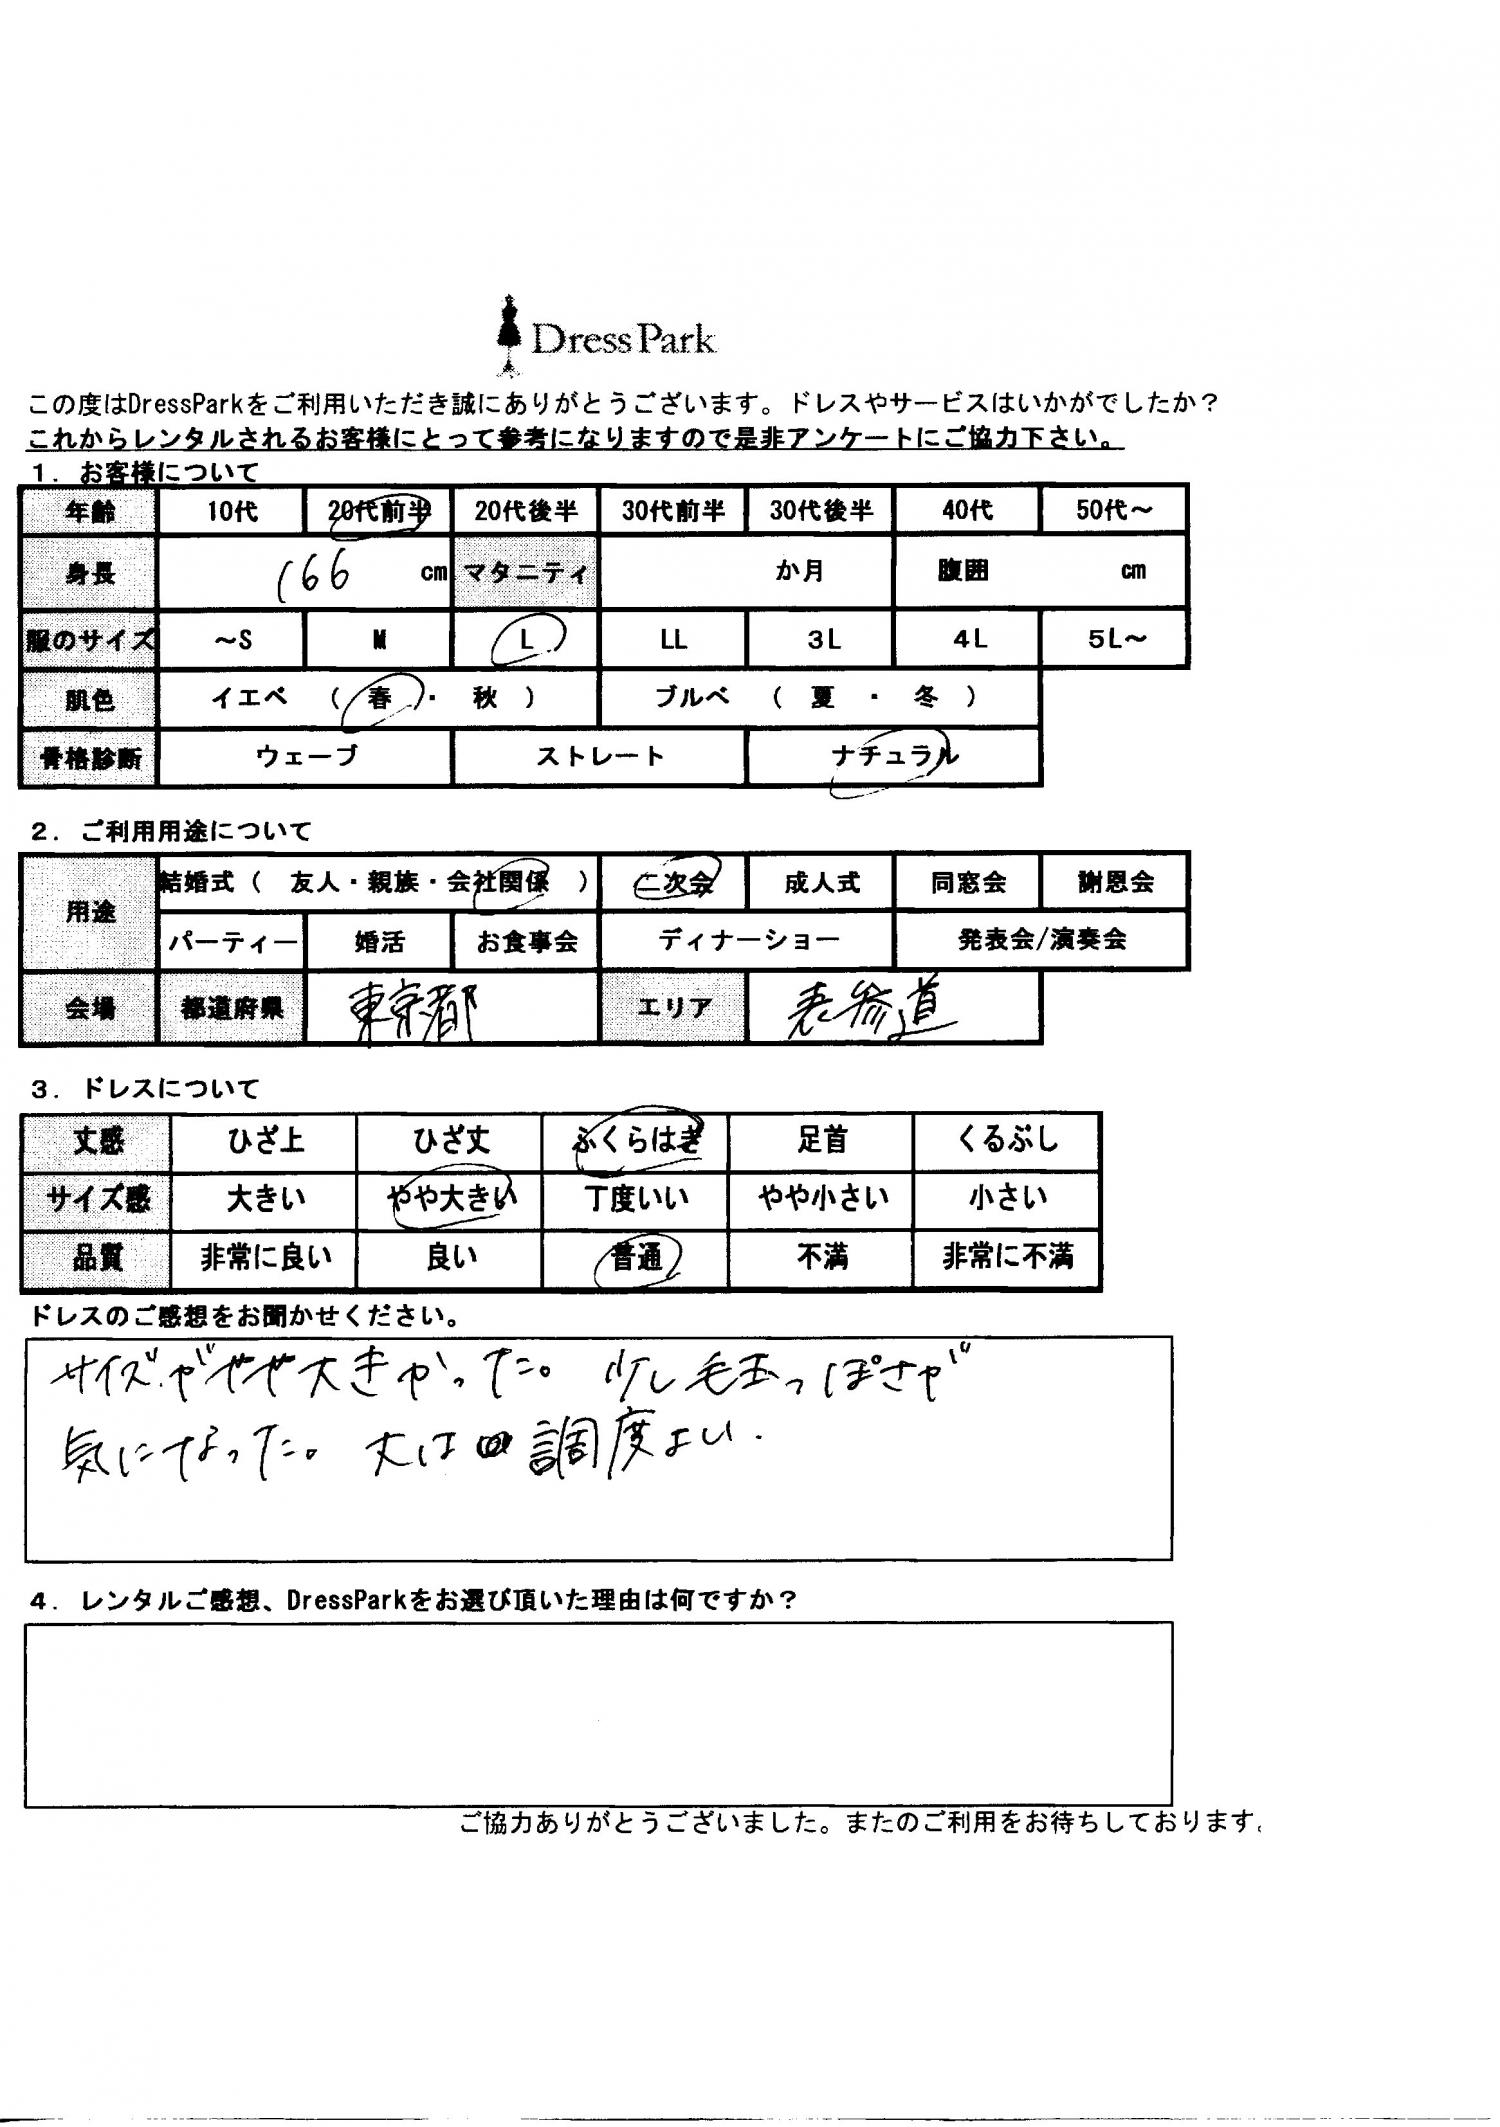 DressPark
この度はDressParkをご利用いただき誠にありがとうございます。ドレスやサービスはいかがでしたか?
これからレンタルされるお客様にとって参考になりますので是非アンケートにご協力下さい。
1. お客様について
年齢 10代 20代前半 20代後半 30代前半 30代後半 40代 50代～
身長 166 cm マタニティ か月 腹囲 cm
服のサイズ ～S M L LL 3L 4L 5L～
肌色 イエベ ( 春 ・ 秋 ) ブルベ ( 夏 ・ 冬 )
骨格診断 ウェーブ ストレート ナチュラル
2. ご利用用途について
用途 結婚式 ( 友人・親族・会社関係 ) 二次会 成人式 同窓会 謝恩会
パーティー 婚活 お食事会 ディナーショー 発表会/演奏会
会場 都道府県 東京都 エリア 表参道
3. ドレスについて
丈感 ひざ上 ひざ丈 ふくらはぎ 足首 くるぶし
サイズ感 大きい やや大きい 丁度いい やや小さい 小さい
品質 非常に良い 良い 普通 不満 非常に不満
ドレスのご感想をお聞かせください。
サイズがやや大きかった。少し毛玉っぽさが
気になった。丈は調度よい.
4. レンタルご感想、DressParkをお選び頂いた理由は何ですか?
ご協力ありがとうございました。またのご利用をお待ちしております。